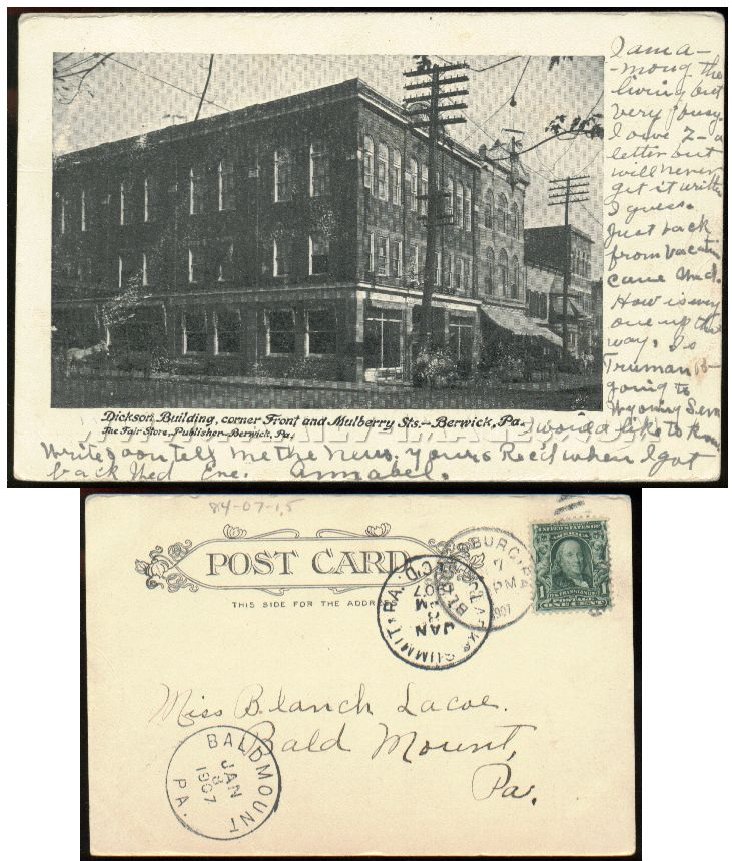 I am a-
-mong the
living but
very busy.
I owe 
letter but
will never
get it written
I guess.
Just back
from vacation
came Wed.
How is every
one up the
way. Is
Truman
going to
Wyoming Sem
would like to know
Dickson Building, corner Front and Mulberry Sts.--Berwick, Pa.
The Fair Store, Publisher--Berwick, Pa.
Write soon tell me the news. Yours Rec'd when I got
back Wed Eve. Annabel.
84-07-15
POST CARD
THIS SIDE FOR THE ADDRESS
BURG, PA.
7
PM
1907
CLARKS SUMMIT, PA.
JAN
8
M
07
REC'D
UNITED STATES OF AMERICA
1
1
POSTAGE
ONE CENT
Miss Blanch Lacoe.
Bald Mount,
Pa.
BALDMOUNT
JAN
8
1907
PA.